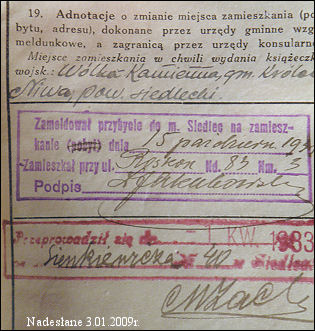 19. Adnotacje o zmianie miejsca zamieszkania (po
bytu, adresu), dokonane przez urzędy gminne wzg
meldunkowe, a zagranicą przez urzędy konsularne
Miejsce zamieszkania w chwili wydania książeczk
wojsk.: Wólka Kamienna, gm. Królo
Niwa pow. siedlecki.
Zameldował przybycie do m. Siedlec na zamiesz-
kanie (pobyt) dnia 15 październ
Zamieszkał przy ul. Nd. 83 Nm. 3
Podpis
Przeprowadził się do - 1 KW. 1933
Sienkiewicza 40 w Siedlc
Nadesłane 3.01.2009r.